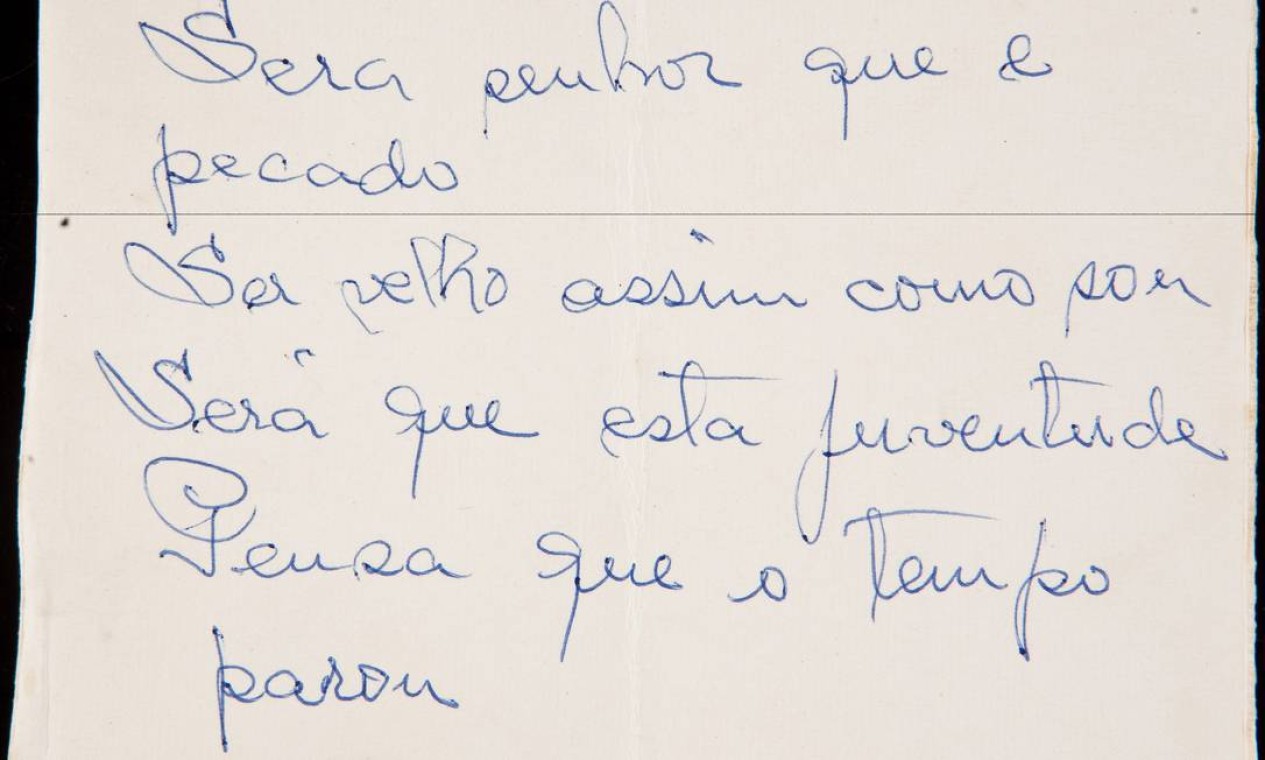 Sera senhor que e
pecado
Ser velho assim como sou
Será que esta juventude
Pensa que o tempo
parou